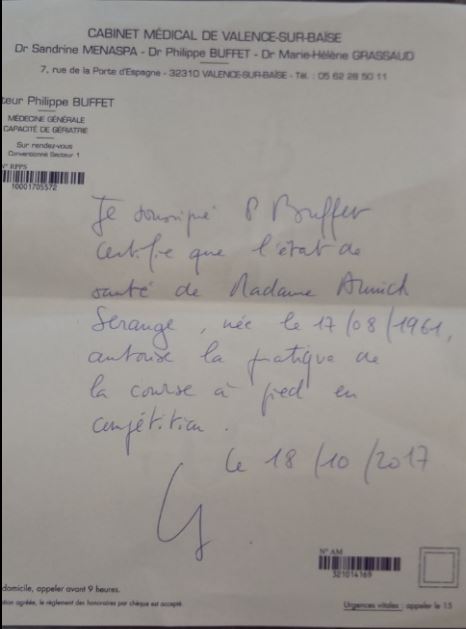 CABINET MÉDICAL DE VALENCE-SUR-BAÏSE
Dr Sandrine MENASPA - Dr Philippe BUFFET - Dr Marie-Hélène GRASSAUD
7, rue de la Porte d'Espagne - 32310 VALENCE-SUR-BAÏSE - Tél. : 05 62 28 50 11
teur Philippe BUFFET
MÉDECINE GÉNÉRALE
CAPACITÉ DE GÉRIATRIE
Sur rendez-vous
Conventionné Secteur 1
N° RPPS
10001705572
Je soussigné P Buffet
certifie que l'état de
santé de Madame
, née le 17/08/1961,
autorise la pratique de
la course à pied en
compétition.
Le 18/10/2017
N° AM
321014169
domicile, appeler avant 9 heures.
ation agréée, le règlement des honoraires par chèque est accepté.
Urgences vitales : appeler le 15